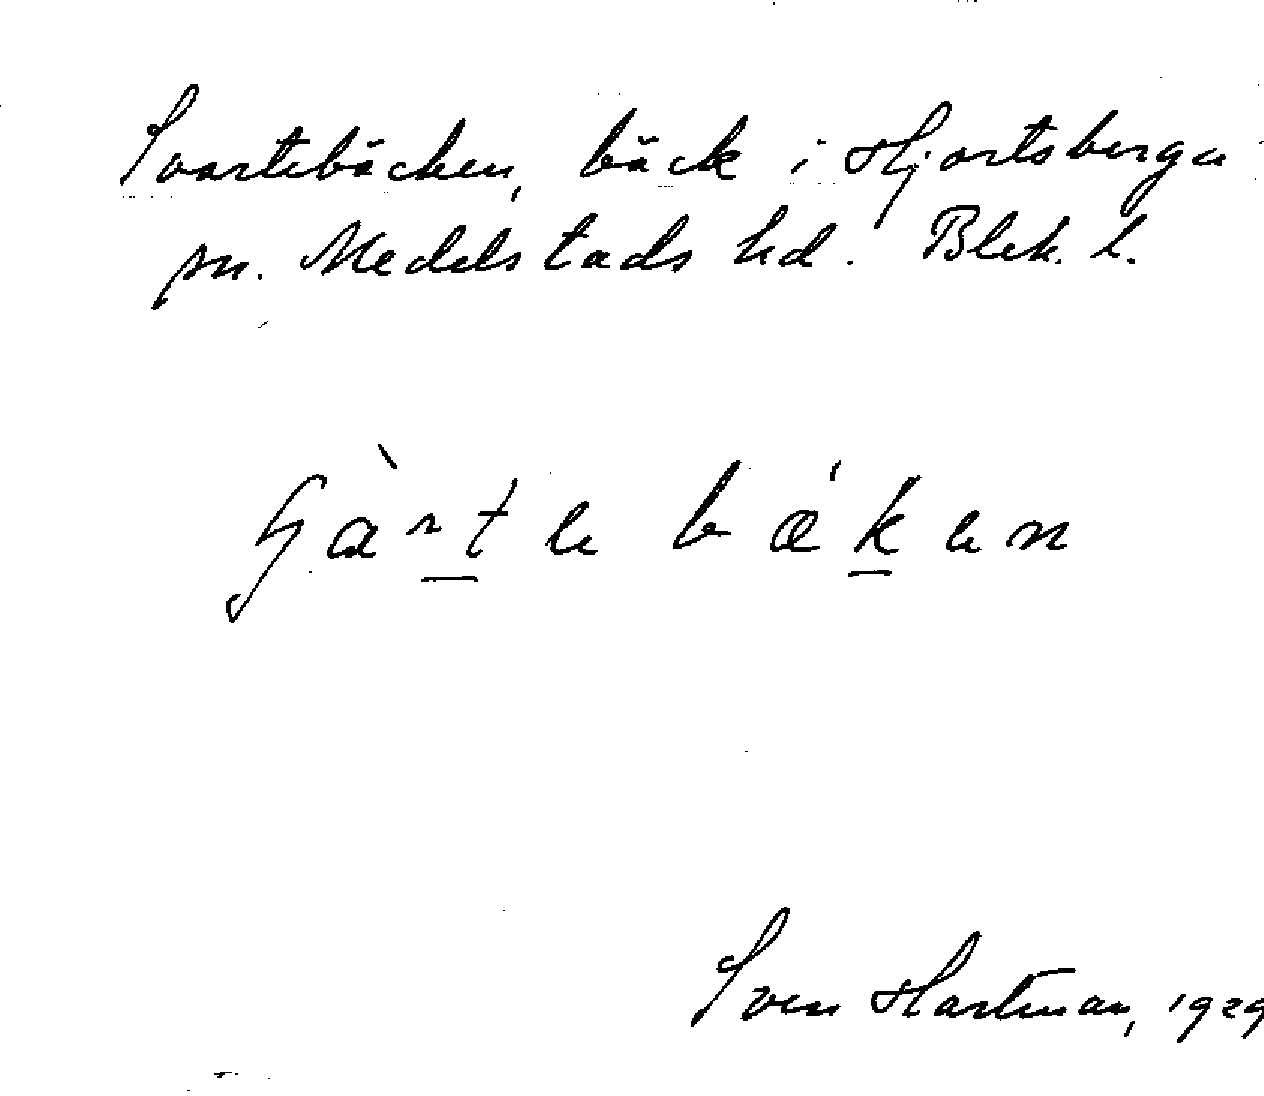 Svartebäcken, bäck i Hjortsberga
sn. Medelstads hd. Blek. l.
Sven Hartman, 1929